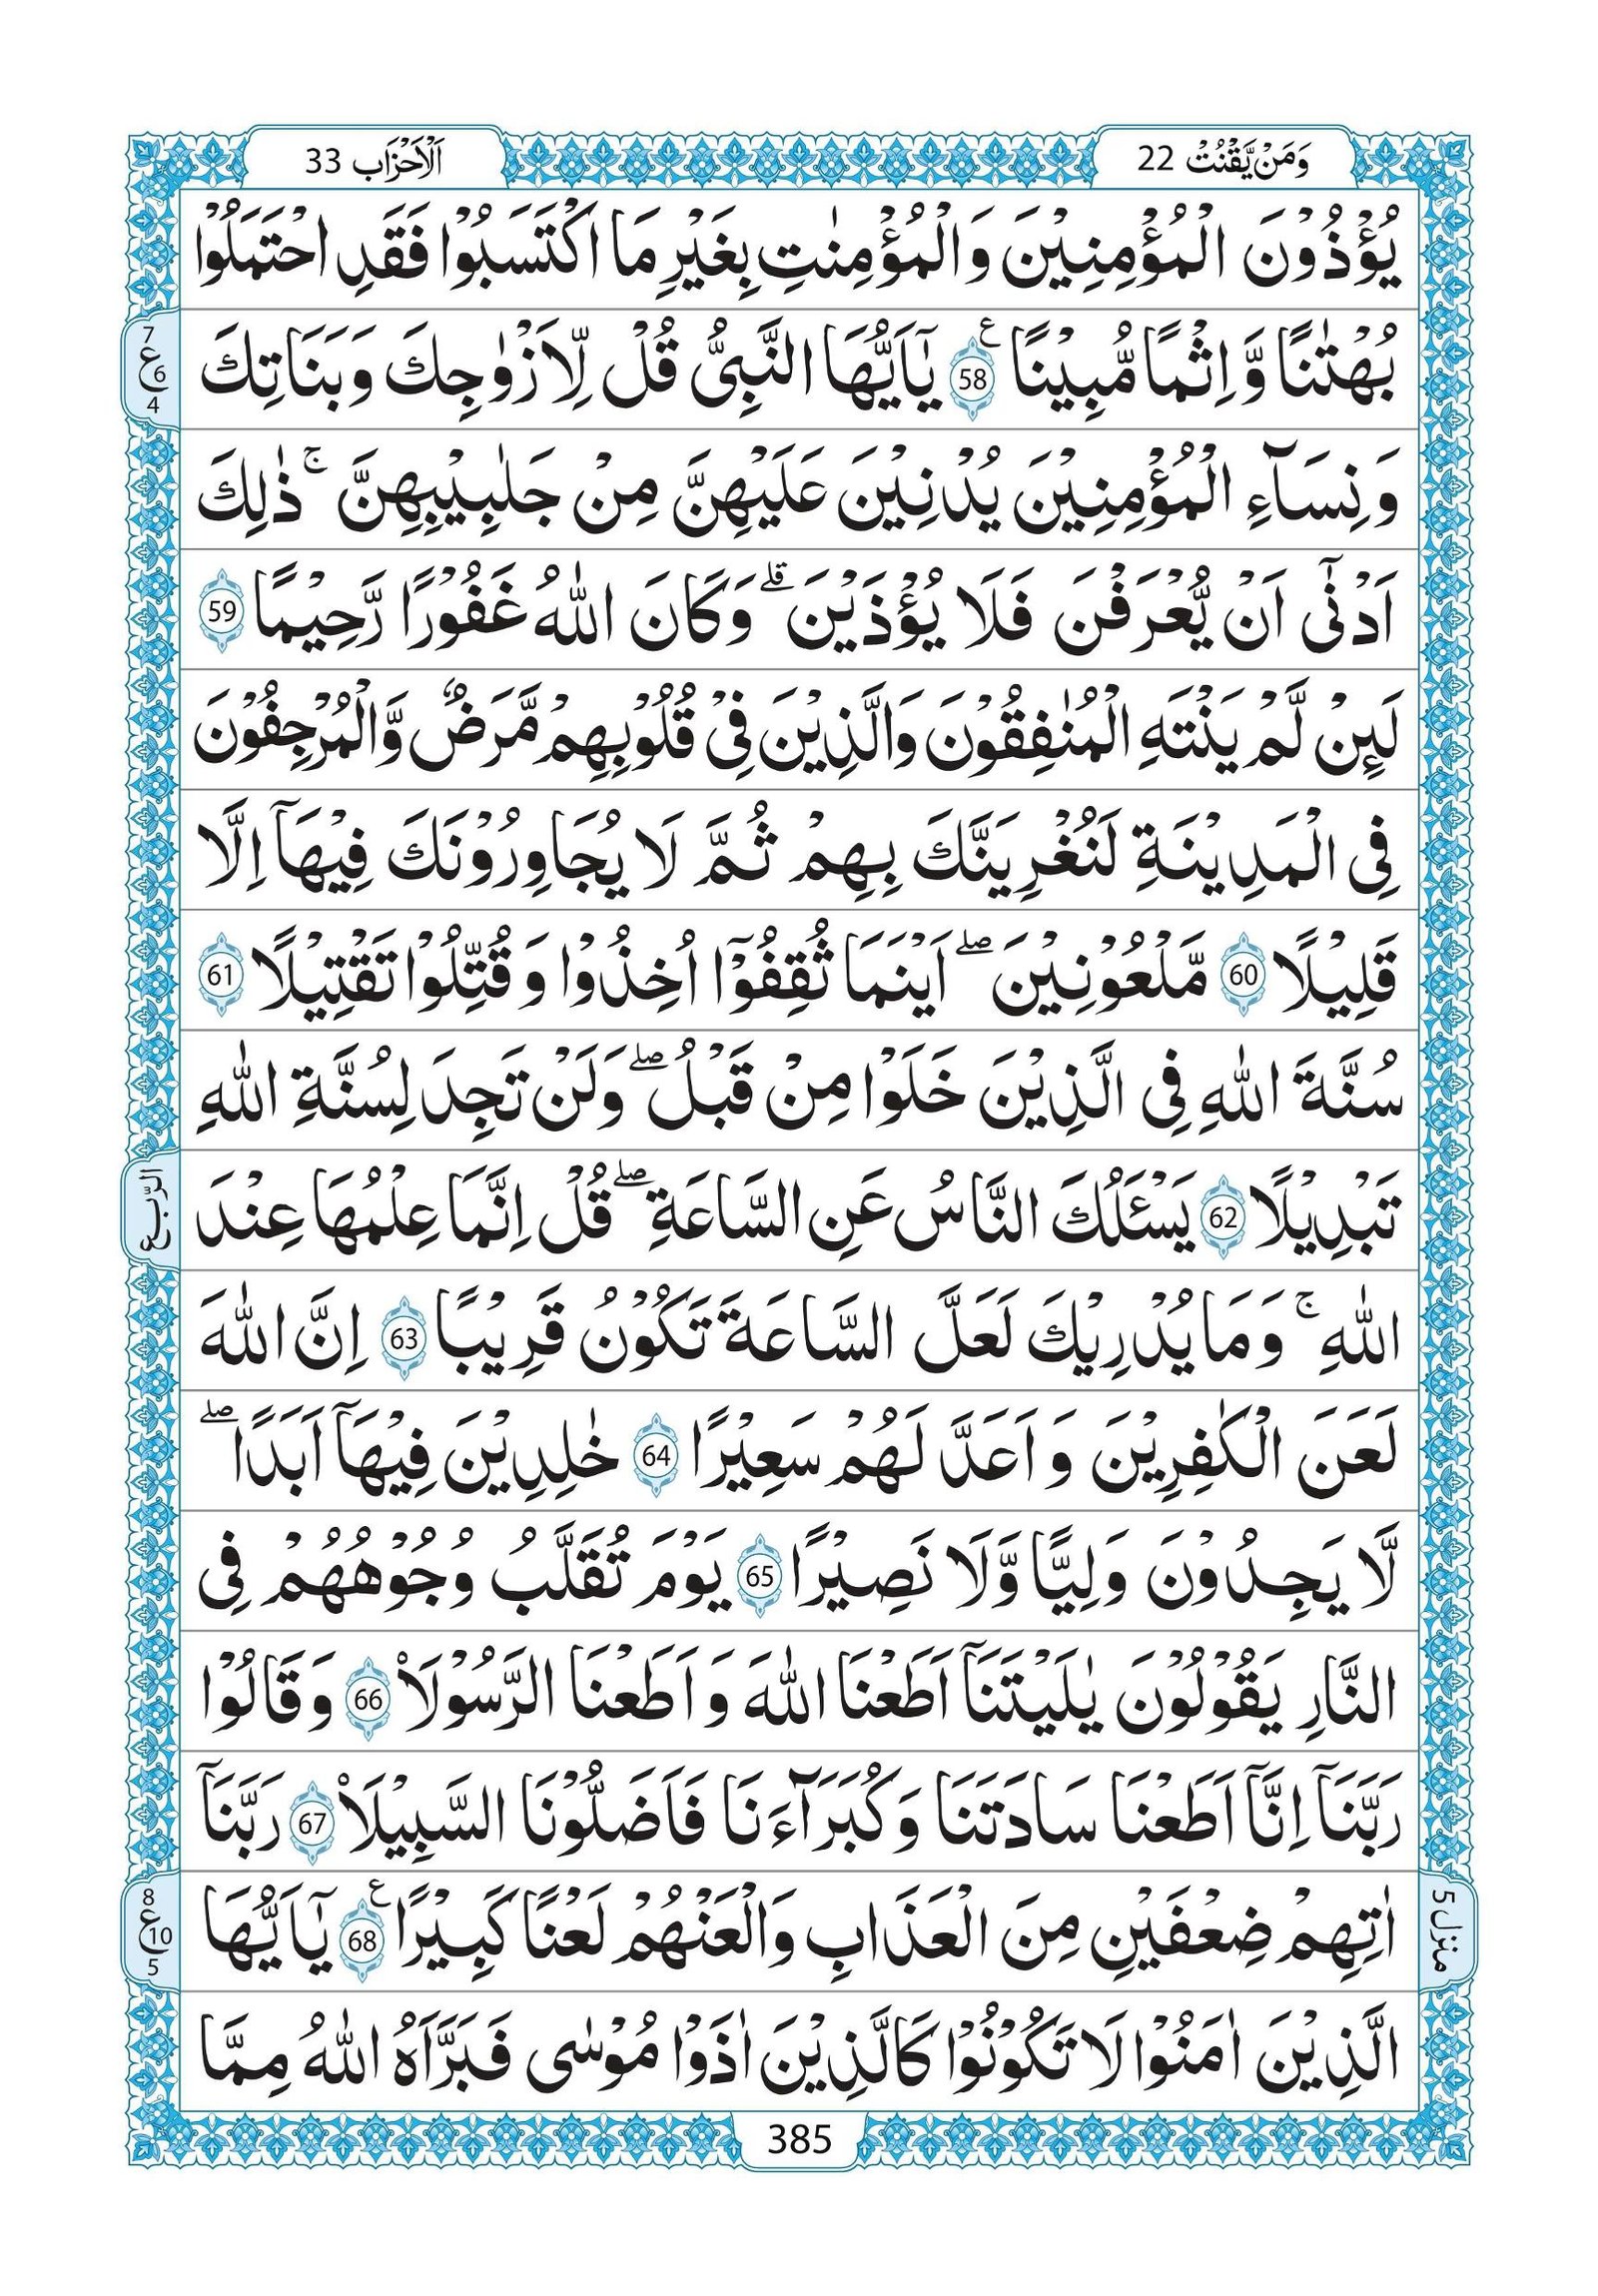 وَمَنْ يَّقْنُتْ 22
اَلْاَحْزَاب 33
يُؤْذُوْنَ الْمُؤْمِنِيْنَ وَ الْمُؤْمِنٰتِ بِغَيْرِ مَا اكْتَسَبُوْا فَقَدِ احْتَمَلُوْا
بُهْتٰنًا وَّ اِثْمًا مُّبِيْنًا ۧ 58 يٰۤاَيُّهَا النَّبِىُّ قُلْ لِّاَزْوٰجِكَ وَبَنَاتِكَ
7
ع 6
4
وَ نِسَآءِ الْمُؤْمِنِيْنَ يُدْنِيْنَ عَلَيْهِنَّ مِنْ جَلٰبِيْبِهِنَّ ۚ ذٰلِكَ
اَدْنٰٓى اَنْ يُّعْرَفْنَ فَلَا يُؤْذَيْنَ ۗ وَكَانَ اللّٰهُ غَفُوْرًا رَّحِيْمًا 59
لَىِٕنْ لَّمْ يَنْتَهِ الْمُنٰفِقُوْنَ وَالَّذِيْنَ فِىْ قُلُوْبِهِمْ مَّرَضٌ وَّالْمُرْجِفُوْنَ
فِى الْمَدِيْنَةِ لَنُغْرِيَنَّكَ بِهِمْ ثُمَّ لَا يُجَاوِرُوْنَكَ فِيْهَاۤ اِلَّا
قَلِيْلًا 60 مَّلْعُوْنِيْنَ ۖ اَيْنَمَا ثُقِفُوْۤا اُخِذُوْا وَ قُتِّلُوْا تَقْتِيْلًا 61
سُنَّةَ اللّٰهِ فِى الَّذِيْنَ خَلَوْا مِنْ قَبْلُ ۖ وَلَنْ تَجِدَ لِسُنَّةِ اللّٰهِ
تَبْدِيْلًا 62 يَسْـَٔلُكَ النَّاسُ عَنِ السَّاعَةِ ۖ قُلْ اِنَّمَا عِلْمُهَا عِنْدَ
الرّبع
اللّٰهِ ۚ وَ مَا يُدْرِيْكَ لَعَلَّ السَّاعَةَ تَكُوْنُ قَرِيْبًا 63 اِنَّ اللّٰهَ
لَعَنَ الْكٰفِرِيْنَ وَ اَعَدَّ لَهُمْ سَعِيْرًا 64 خٰلِدِيْنَ فِيْهَاۤ اَبَدًا ۖ
لَّا يَجِدُوْنَ وَلِيًّا وَّلَا نَصِيْرًا 65 يَوْمَ تُقَلَّبُ وُجُوْهُهُمْ فِى
النَّارِ يَقُوْلُوْنَ يٰلَيْتَنَاۤ اَطَعْنَا اللّٰهَ وَ اَطَعْنَا الرَّسُوْلَا۠ 66 وَقَالُوْا
رَبَّنَاۤ اِنَّاۤ اَطَعْنَا سَادَتَنَا وَكُبَرَآءَنَا فَاَضَلُّوْنَا السَّبِيْلَا۠ 67 رَبَّنَاۤ
اٰتِهِمْ ضِعْفَيْنِ مِنَ الْعَذَابِ وَالْعَنْهُمْ لَعْنًا كَبِيْرًا ۧ 68 يٰۤاَيُّهَا
8
ع 10
5
منزل 5
الَّذِيْنَ اٰمَنُوْا لَا تَكُوْنُوْا كَالَّذِيْنَ اٰذَوْا مُوْسٰى فَبَرَّاَهُ اللّٰهُ مِمَّا
385